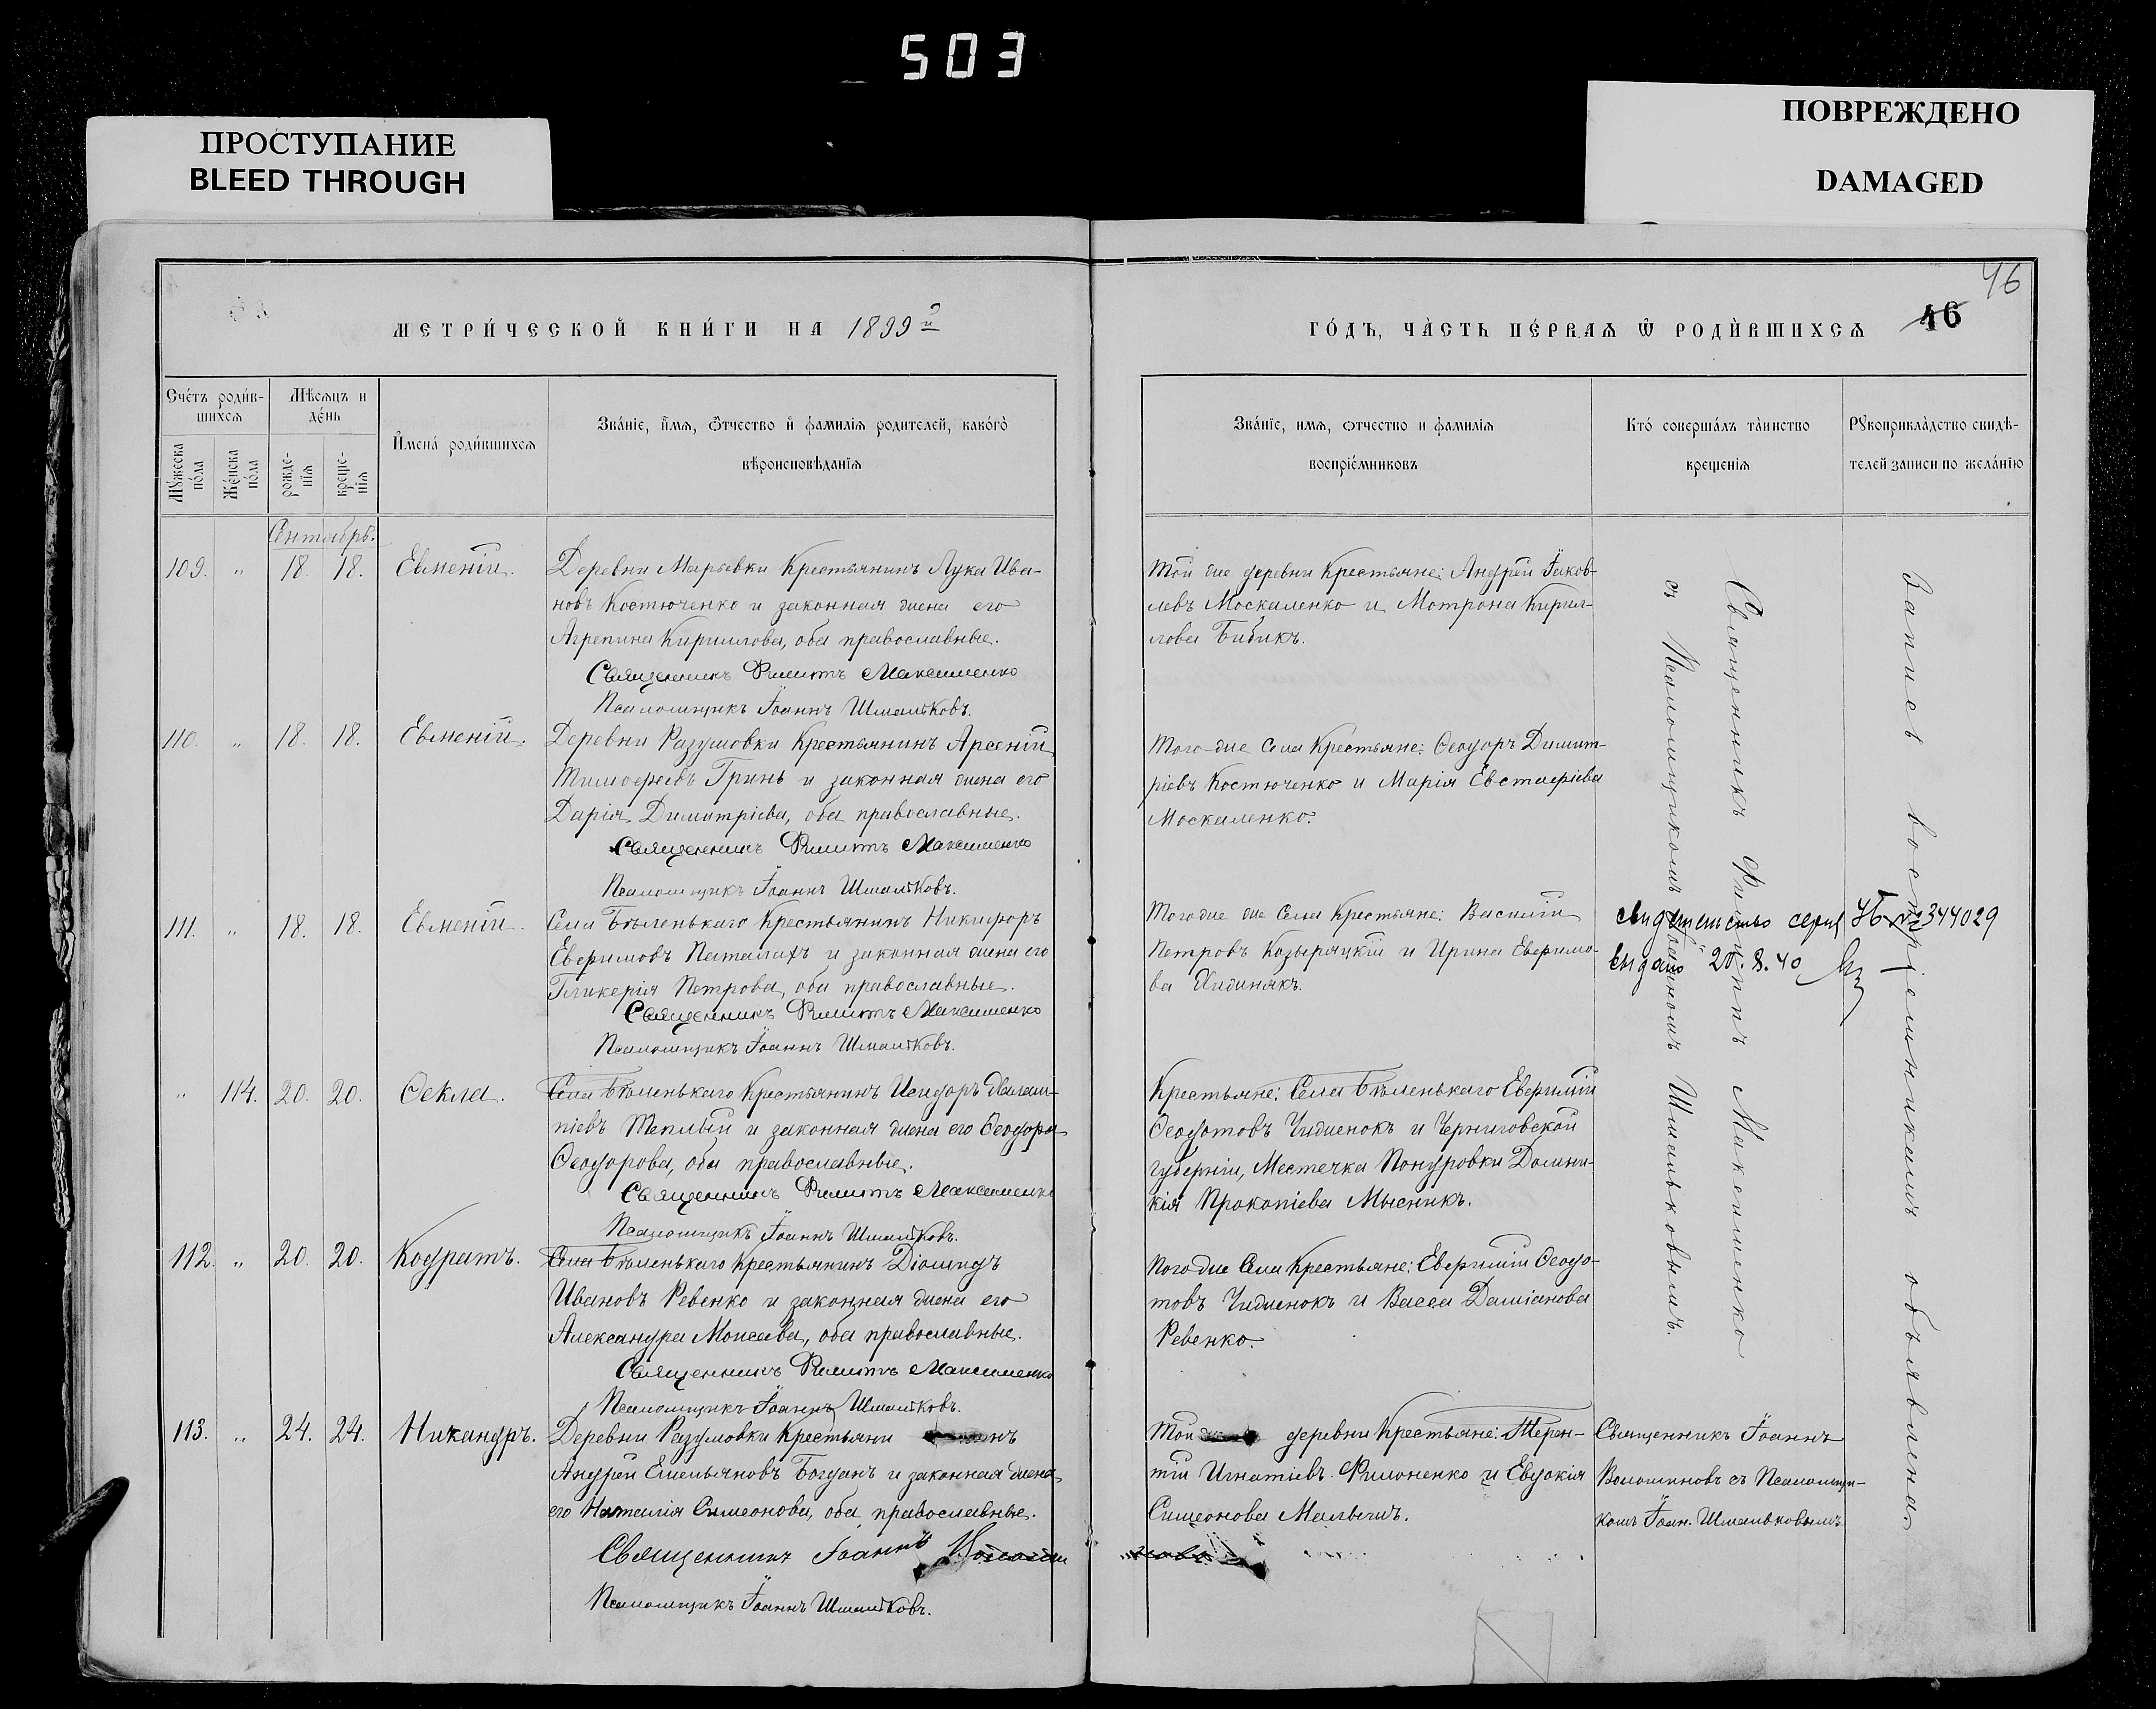 503
ПРОСТУПАНИЕ
BLEED THROUGH
ПОВРЕЖДЕНО
DAMAGED
46
46
МЕТРИ́ЧЕСКОЙ КНИ́ГИ НА 1899й
ГО́ДЪ, ЧА̀СТЬ ПЕ́РВАѦ Ѿ РОДЍВШИХСѦ
Сче́тъ роди́в-
шихсѧ
Мѣ́сѧцъ и
де́нь
Мꙋ́жеска
по́ла
Же́нска
по́ла
рожде-
нїѧ
креще-
нїѧ
Имена́ роди́вшихсѧ
Зва́нїе, и́мѧ, ѻ́тчество и фамилїѧ родителей, како́гѡ
вѣроисповѣ́данїѧ
Зва́нїе, имѧ, ѻтчество и фамилїѧ
воспрїе́мниковъ
Кто́ соверша́лъ та́инство
крещенїѧ
Рꙋкоприкла́дство свидѣ́-
телей записи по жела́нїю
Сентябрь.
109. " 18. 18. Евменій.
Деревни Марьевки Крестьянинъ Лука Ива-
новъ Костюченко и законная жена его
Агрепина Кириллова, оба православные.
Священникъ Филиппъ Максименко
Псаломщикъ Іоаннъ Шмальковъ.
Той же деревни Крестьяне: Андрей Іаков-
левъ Москаленко и Мотрона Кирил-
лова Бибикъ.
110. " 18. 18. Евменій.
Деревни Разумовки Крестьянинъ Арсеній
Тимофеевъ Гринь и законная жена его
Дарія Димитріева, оба православные.
Священникъ Филиппъ Максименко
Псаломщикъ Іоаннъ Шмальковъ.
Того-же Села Крестьяне: Ѳеодоръ Димит-
ріевъ Костюченко и Марія Евстафіева
Москаленко.
111. " 18. 18. Евменій.
Села Бѣленькаго Крестьянинъ Никифоръ
Евфимовъ Паталахъ и законная жена его
Гликерія Петрова, оба православные.
Священникъ Филиппъ Максименко
Псаломщикъ Іоаннъ Шмальковъ.
Села Крестьяне: Василій
Петровъ Козыряцкій и Ирина Евфимо-
ва
свидетельство серия № 344029
выдано 20.8.40
" 114. 20. 20. Ѳекла.
Села Бѣленькаго Крестьянинъ Исидоръ
піевъ Теплый и законная жена его Ѳеодора
Ѳеодорова, оба православные.
Священникъ Филиппъ Максименко
Псаломщикъ Іоаннъ Шмальковъ.
Крестьяне: Села Бѣленькаго Евфимій
Ѳеодотовъ Чижченокъ и Черниговской
губерніи, Местечка Понуровки Домни-
кія Прокопіева Мысникъ.
112. " 20. 20. Кодратъ.
Села Бѣленькаго Крестьянинъ Діомидъ
Ивановъ Ревенко и законная жена его
Александра Моисеева, оба православные.
Священникъ Филиппъ Максименко
Псаломщикъ Іоаннъ Шмальковъ.
Того же Села Крестьяне: Евфимій Ѳеодо-
товъ Чижченокъ и Васса Даміанова
Ревенко.
113. " 24. 24. Никандръ.
Деревни Разумовки Крестьяни нъ
Андрей Емельяновъ Богданъ и законная жена
его Наталія Симеонова, оба православные.
Священникъ Іоаннъ Волошиновъ
Псаломщикъ Іоаннъ Шмальковъ.
Той деревни Крестьяне: Терен-
тій Игнатіевъ Филоненко и Евдокія
Симеонова Малышъ.
Священникъ Іоаннъ
Волошиновъ съ Псаломщи-
комъ Іоан. Шмальковымъ
Священникъ Филиппъ Максименко
съ Псаломщикомъ Іоанномъ Шмальковымъ.
Запись воспріемникамъ объявлена